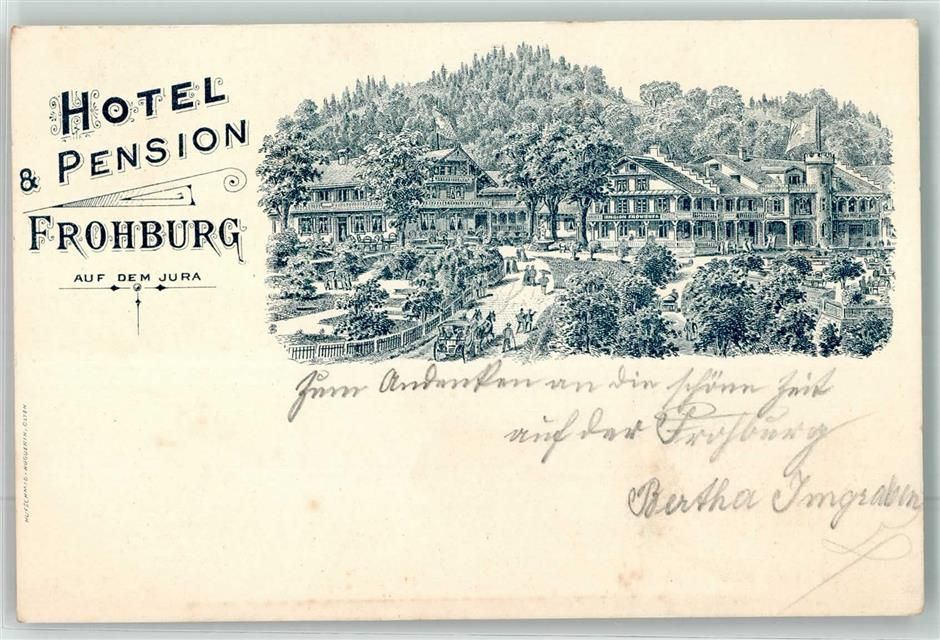 HOTEL
& PENSION
FROHBURG
AUF DEM JURA
PENSION FROHBURG
Zum Andenken an die schöne Zeit
auf der Frohburg
Bertha Imgraben
HUFSCHMID-HUGUENIN, OLTEN